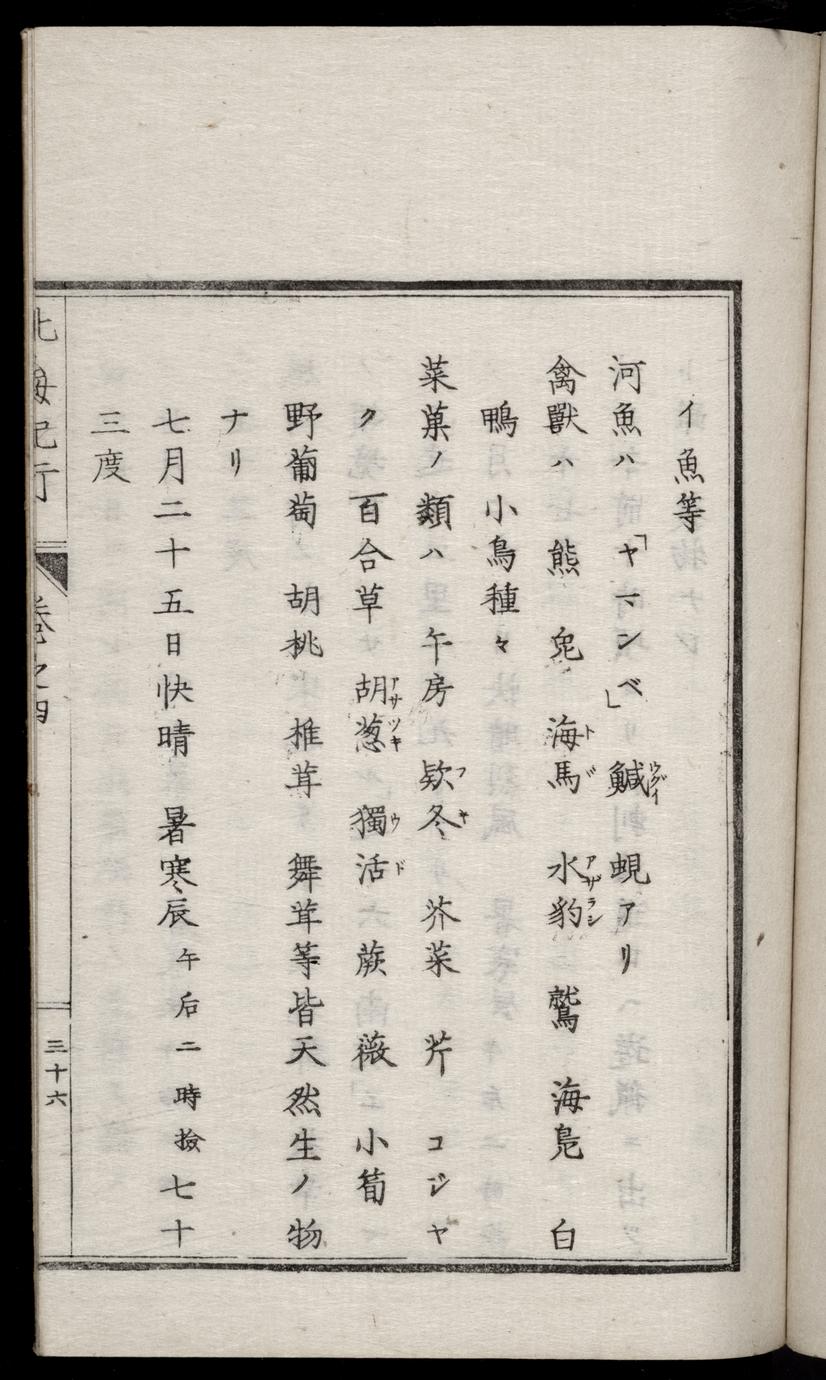 イ魚等
河魚ハ「ヤマンベ」鰔ウグイ蜆アリ
禽獸ハ熊 兎 海馬トド 水豹アザラシ 鷲 海鳧 白
鴨 小鳥種々
菜菓ノ類ハ午房 欵冬フキ 芥菜 芹 コジヤ
ク 百合草 胡葱アサツキ 獨活ウド 蕨 薇 小筍
野葡萄 胡桃 椎茸 舞茸等皆天然生ノ物
ナリ
七月二十五日快晴 暑寒辰午后二時撿七十
三度
北海紀行 卷之四 三十六